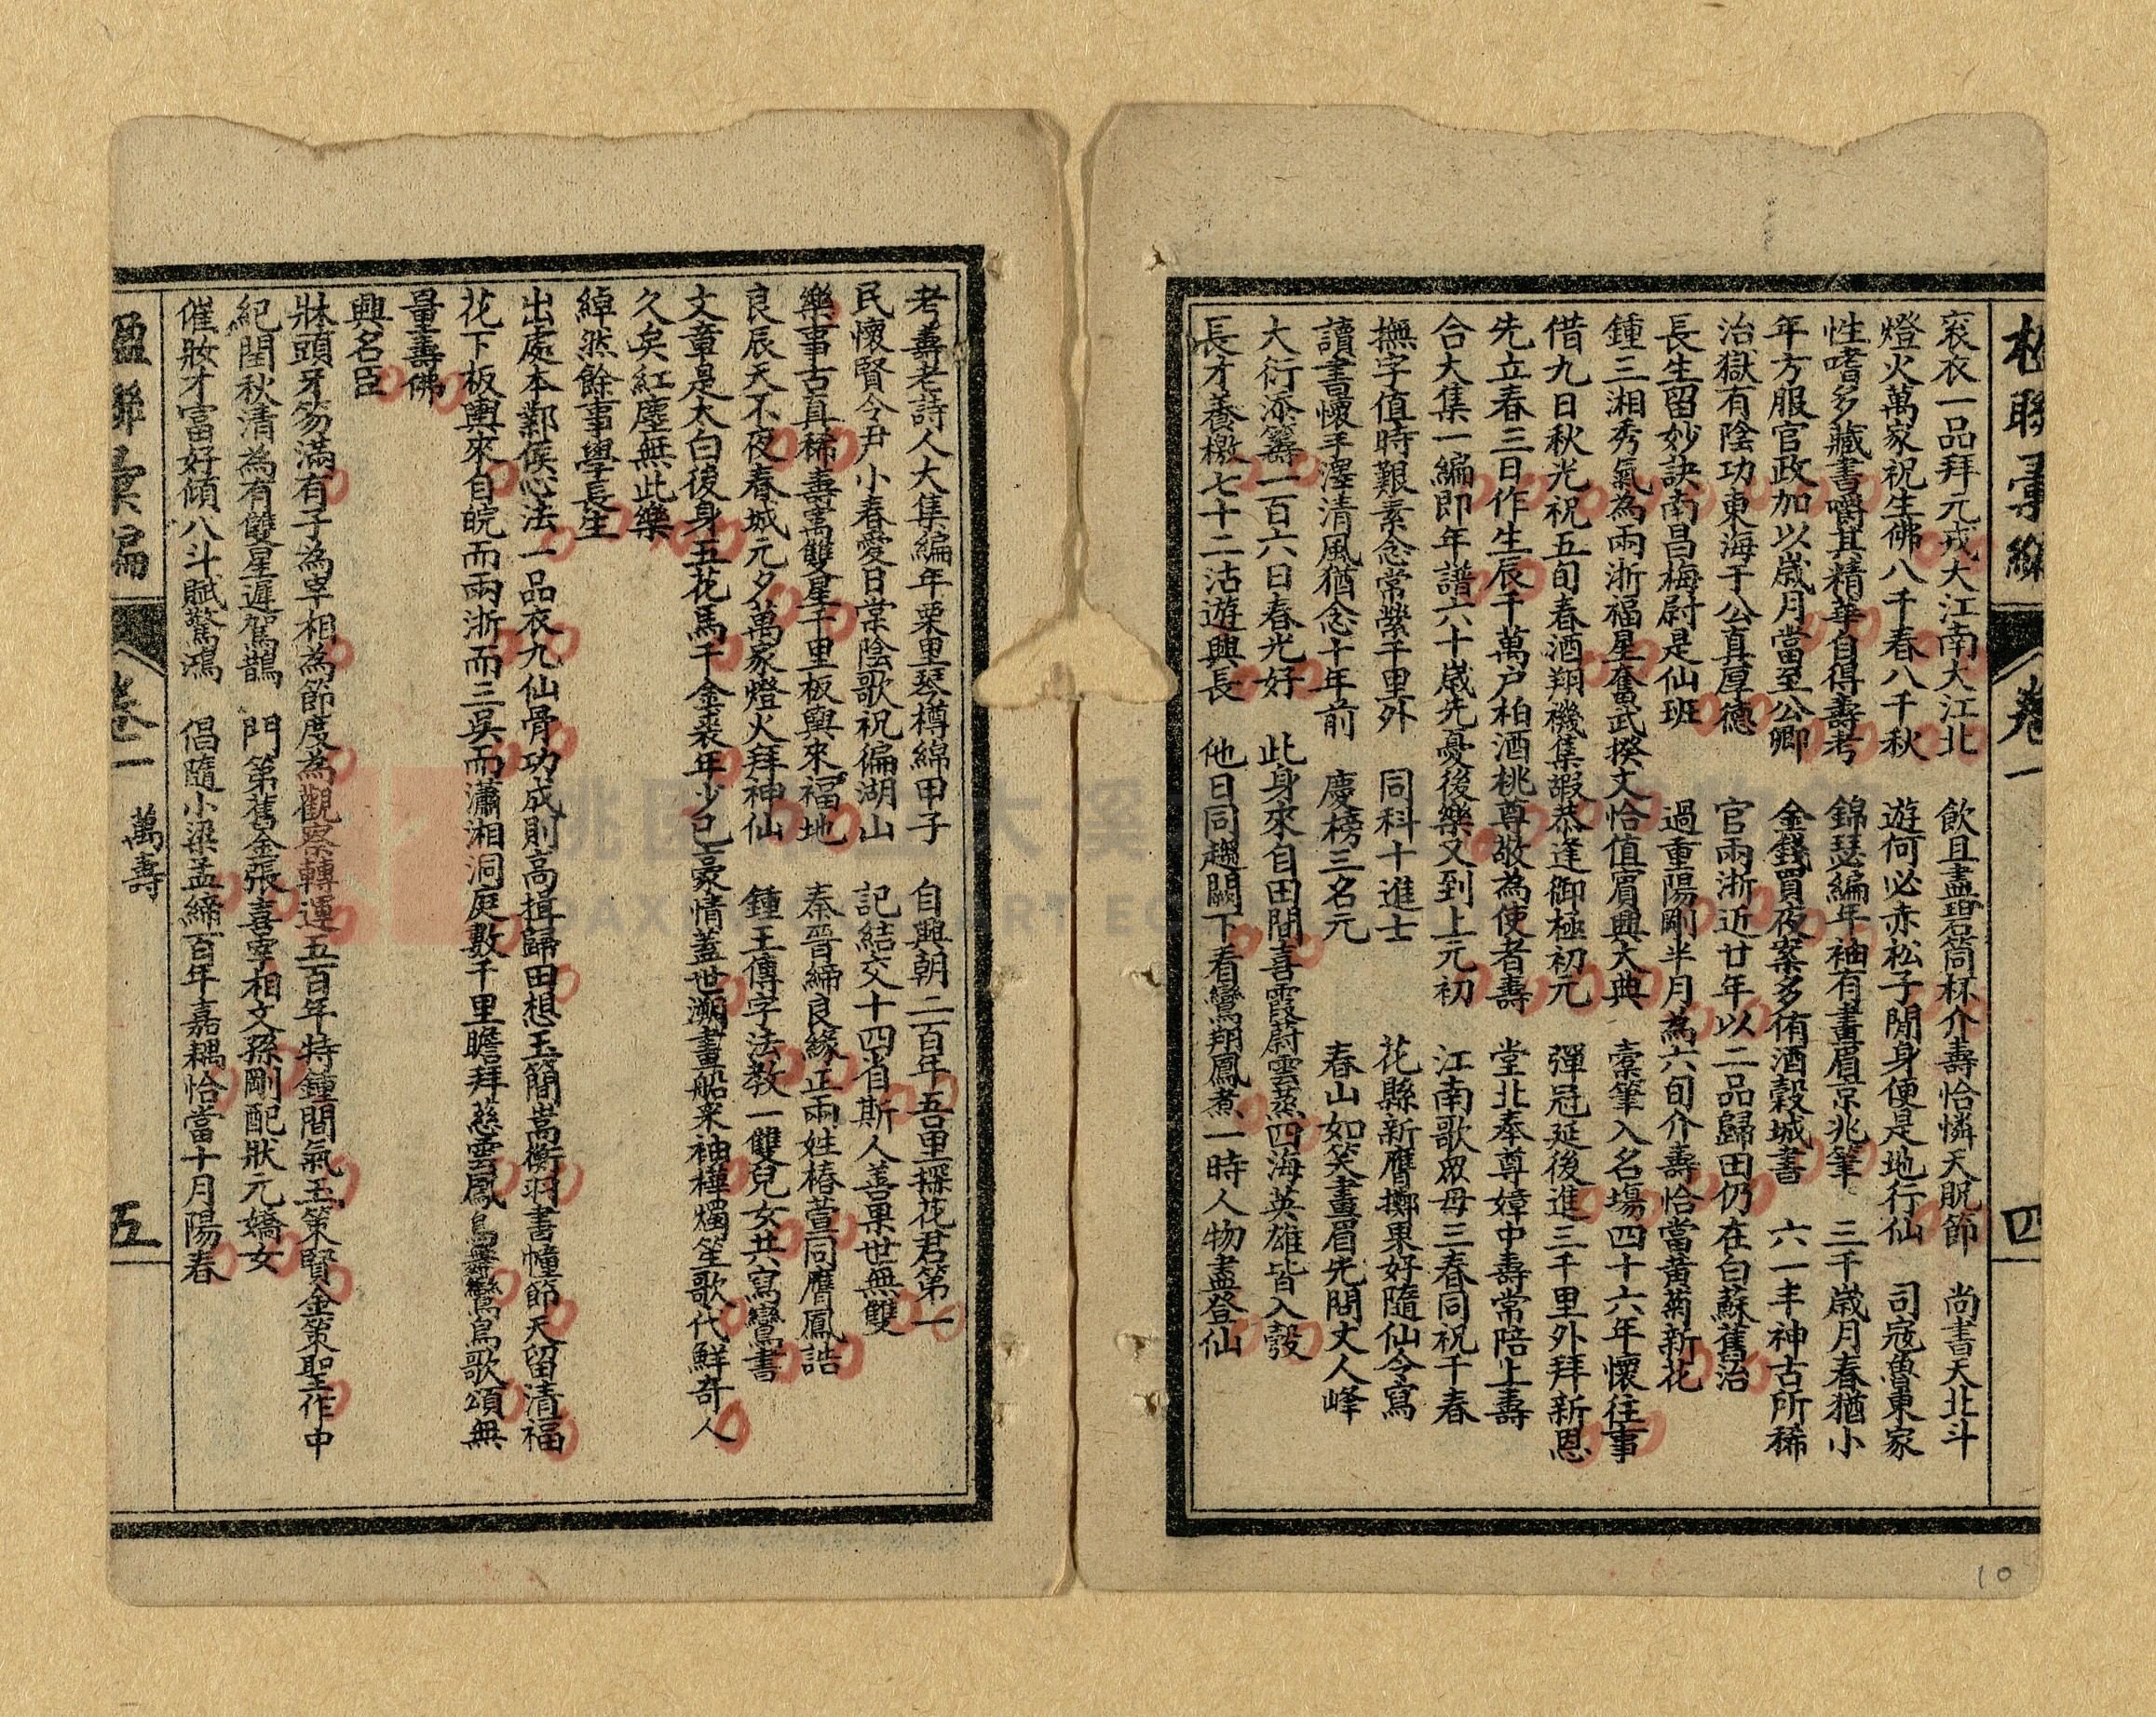 楹聯彙編 卷一 四
袞衣一品拜元戎大江南大江北 飲且盡碧筒杯介壽恰憐天貺節 尚書天北斗
燈火萬家祝生佛八千春八千秋 遊何必赤松子閒身便是地行仙 司寇魯東家
性嗜多藏書嚼其精華自得壽考 錦瑟編年袖有畫眉京兆筆 三千歲月春猶小
年方服官政加以歲月當至公卿 金錢買夜案多侑酒穀城書 六一丰神古所稀
治獄有陰功東海于公真厚德 官兩浙近廿年以二品歸田仍在白蘇舊治
長生留妙訣南昌梅尉是仙班 過重陽剛半月為六旬介壽恰當黃菊新花
鍾三湘秀氣為兩浙福星奮武揆文恰值賓興大典 橐筆入名場四十六年懷往事
借九日秋光祝五旬春酒翔機集嘏恭逢御極初元 彈冠延後進三千里外拜新恩
先立春三日作生辰千萬户柏酒桃尊敬為使者壽 堂北奉尊嫜中壽常陪上壽
合大集一編即年譜六十歲先憂後樂又到上元初 江南歌眾母三春同祝千春
撫字值時艱素念常縈千里外 同科十進士 花縣新膺擲果好隨仙令寫
讀書懷手澤清風猶念十年前 慶榜三名元 春山如笑畫眉先問丈人峰
大衍添籌一百六日春光好 此身來自田間喜霞蔚雲蒸四海英雄皆入彀
長才養檄七十二沽遊興長 他日同趨闕下看鸞翔鳳翥一時人物盡登仙
考壽老詩人大集編年栗里琴樽綿甲子 自興朝二百年吾里探花君第一
民懷賢令尹小春愛日棠陰歌祝徧湖山 記結交十四省斯人善果世無雙
樂事古真稀壽寓雙星千里板輿來福地 秦晉締良緣正兩姓椿萱同膺鳳誥
良辰天不夜春城元夕萬家燈火拜神仙 鍾王傳字法教一雙兒女共寫鸞書
文章是太白後身五花馬千金裘年少已豪情蓋世溯畫船來袖樺燭笙歌代鮮奇人
久矣紅塵無此樂
綽然餘事學長生
出處本鄴侯心法一品衣九仙骨功成則高揖歸田想玉簡嵩衡羽書幢節天留清福
花下板輿來自皖而兩浙而三吳而瀟湘洞庭數千里瞻拜慈雲鳳鳥舞鸞鳥歌頌無
量壽佛
興名臣
牀頭牙笏滿有子為宰相為節度為觀察轉運五百年特鍾間氣玉策賢金策聖作中
紀閏秋清為有雙星遲駕鵲 門第舊金張喜宰相文孫剛配狀元嬌女
催妝才富好傾八斗賦驚鴻 倡隨小梁孟締百年嘉耦恰當十月陽春
楹聯彙編 卷一 萬壽 五
10